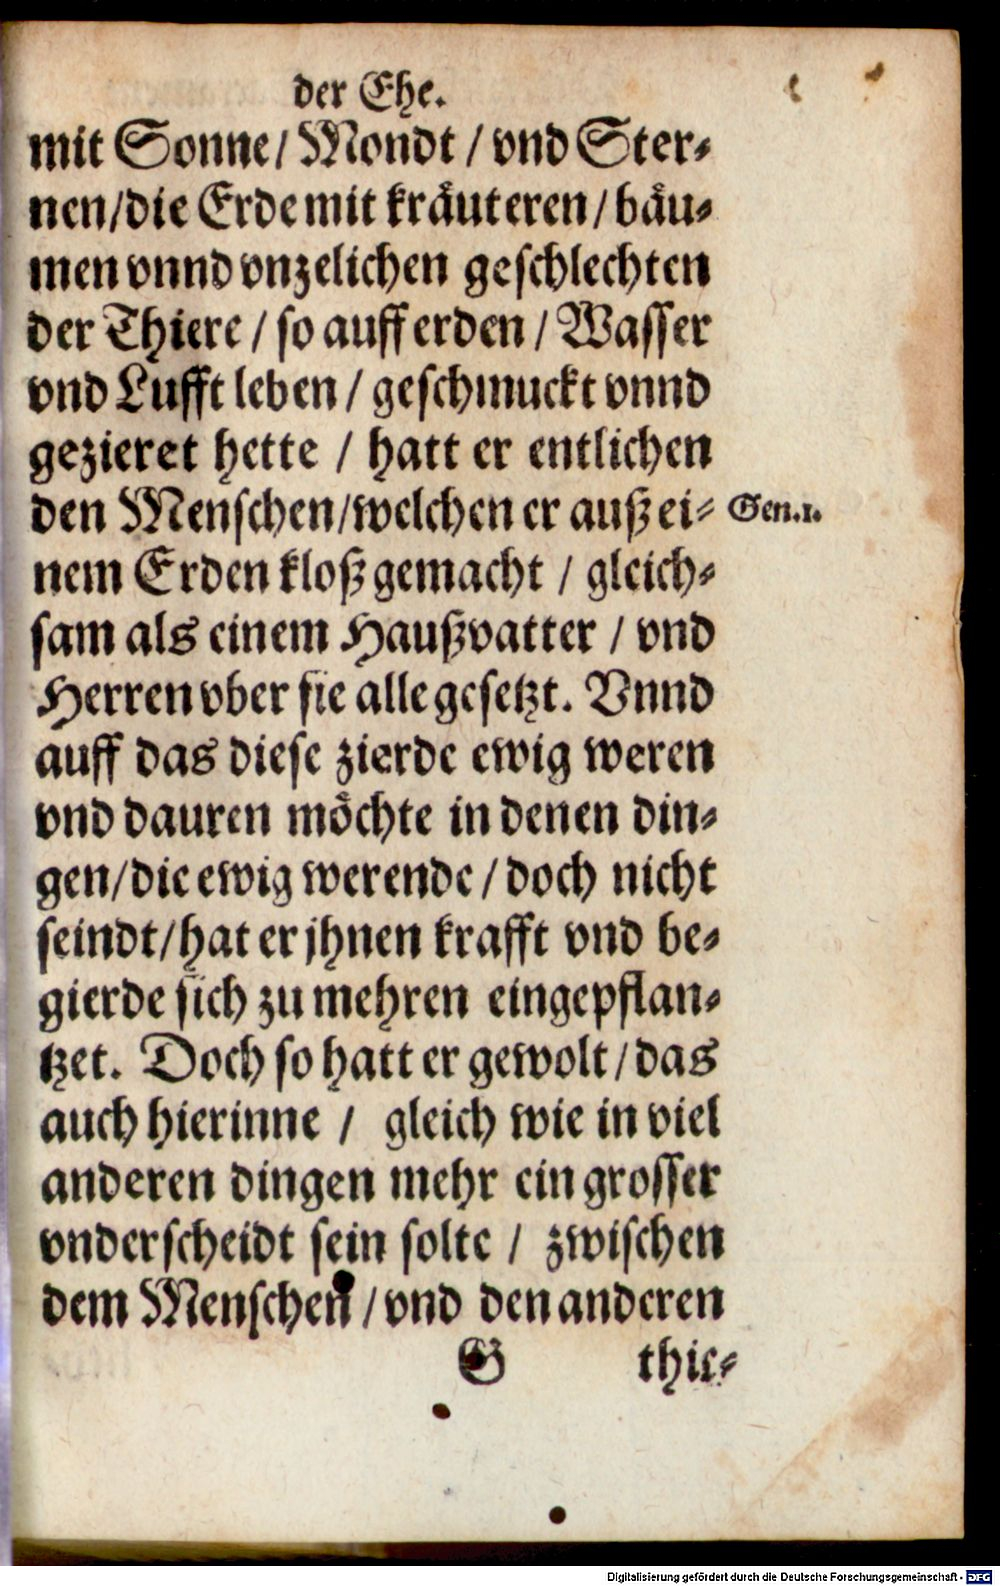 der Ehe.
mit Sonne / Mondt / vnd Ster⸗
nen / die Erde mit kräuteren / bäu⸗
men vnnd vnzelichen geschlechten
der Thiere / so auff erden / Wasser
vnd Lufft leben / geschmuckt vnnd
gezieret hette / hatt er entlichen
den Menschen / welchen er auß ei⸗ Gen.1.
nem Erden kloß gemacht / gleich⸗
sam als einem Haußvatter / vnd
Herren vber sie alle gesetzt. Vnnd
auff das diese zierde ewig weren
vnd dauren möchte in denen din⸗
gen / die ewig werende / doch nicht
seindt / hat er jhnen krafft vnd be⸗
gierde sich zu mehren eingepflan⸗
tzet. Doch so hatt er gewolt / das
auch hierinne / gleich wie in viel
anderen dingen mehr ein grosser
vnderscheidt sein solte / zwischen
dem Menschen / vnd den anderen
G thie⸗
Digitalisierung gefördert durch die Deutsche Forschungsgemeinschaft - DFG